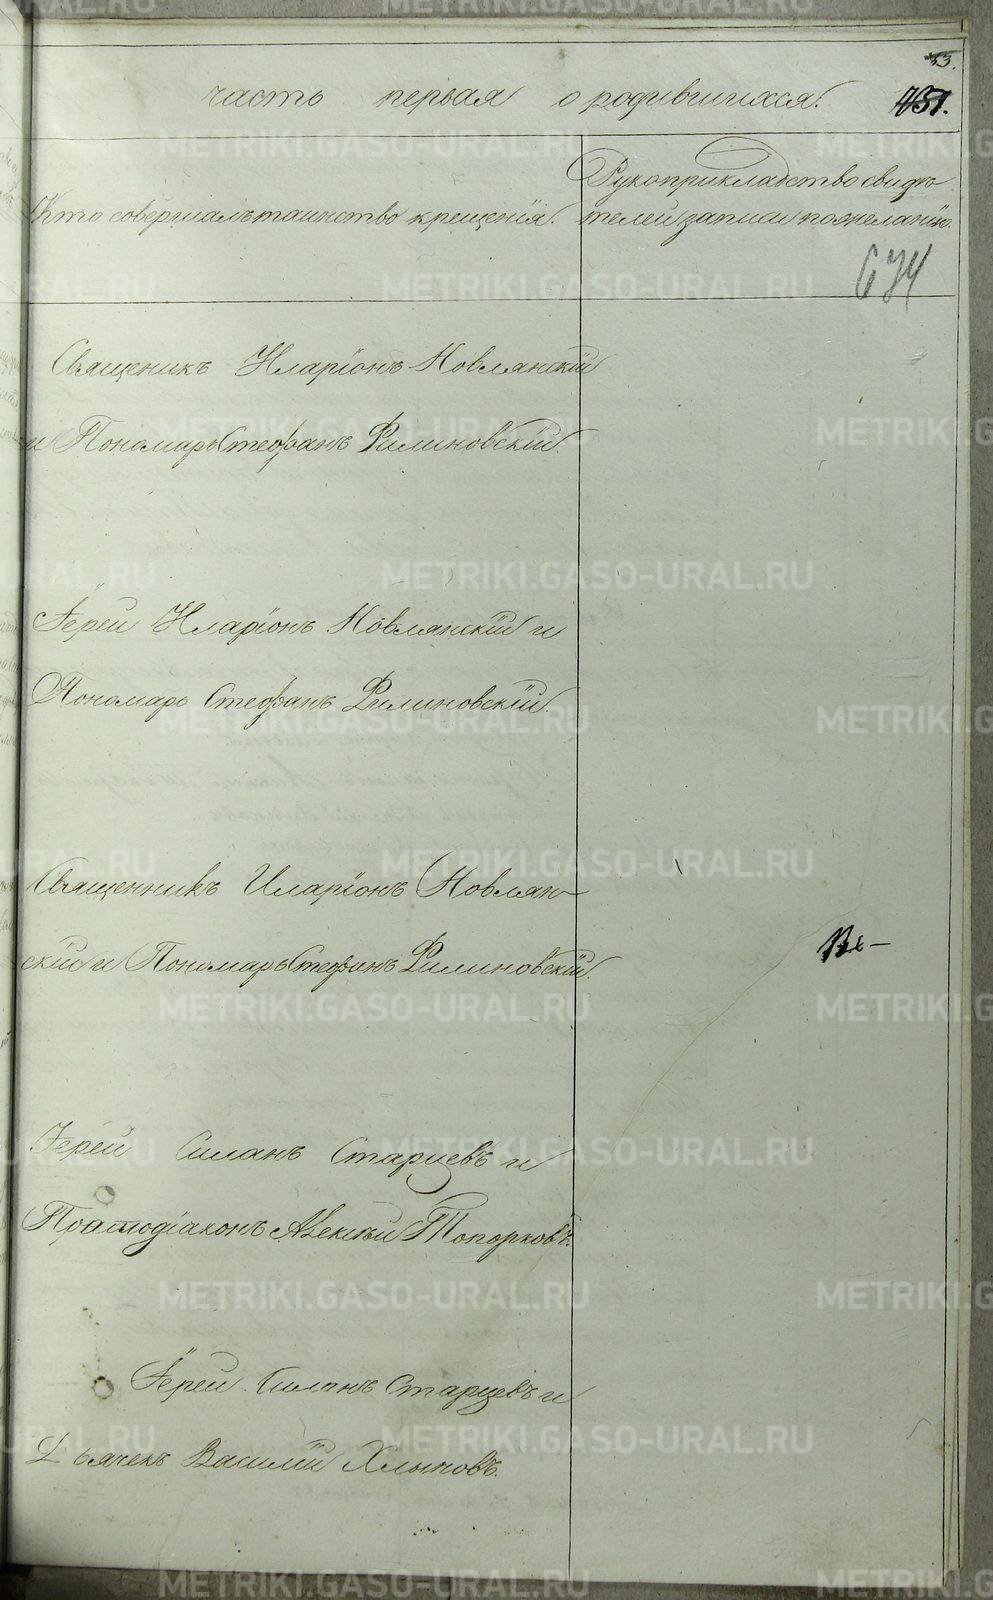 33.
часть первая о родившихся. 731.
Рукоприкладство свидѣ
Кто совершалъ таинство крещенія. телей записи по желанію.
674
Священикъ Иларіонъ Новлянскій
и Пономарь Стефанъ Филиновскій.
Іерей Иларіонъ Новлянскій и
Пономарь Стефанъ Филиновскій.
Священникъ Иларіонъ Новлян-
скій и Пономарь Стефанъ Филиновскій.
Іерей Силанъ Старцевъ и
Алексѣй Топорковъ.
Іерей Силанъ Старцевъ и
Дьячекъ Василій Хлыновъ.
METRIKI.GASO-URAL.RU